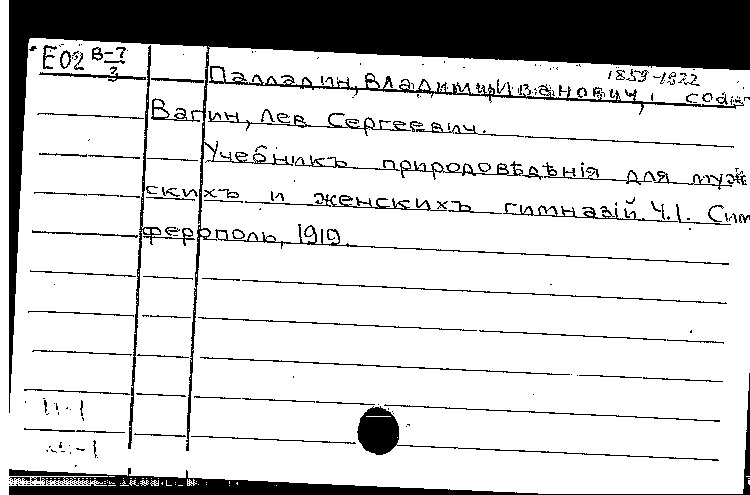 Е02 В-7/3
1859-1922
Палладин, Владимир Иванович, соав
Вагин, Лев Сергеевич.
Учебникъ природовѣдѣнія для муж
скихъ и женскихъ гимназій. Ч.1. Сим
ферополь, 1919.